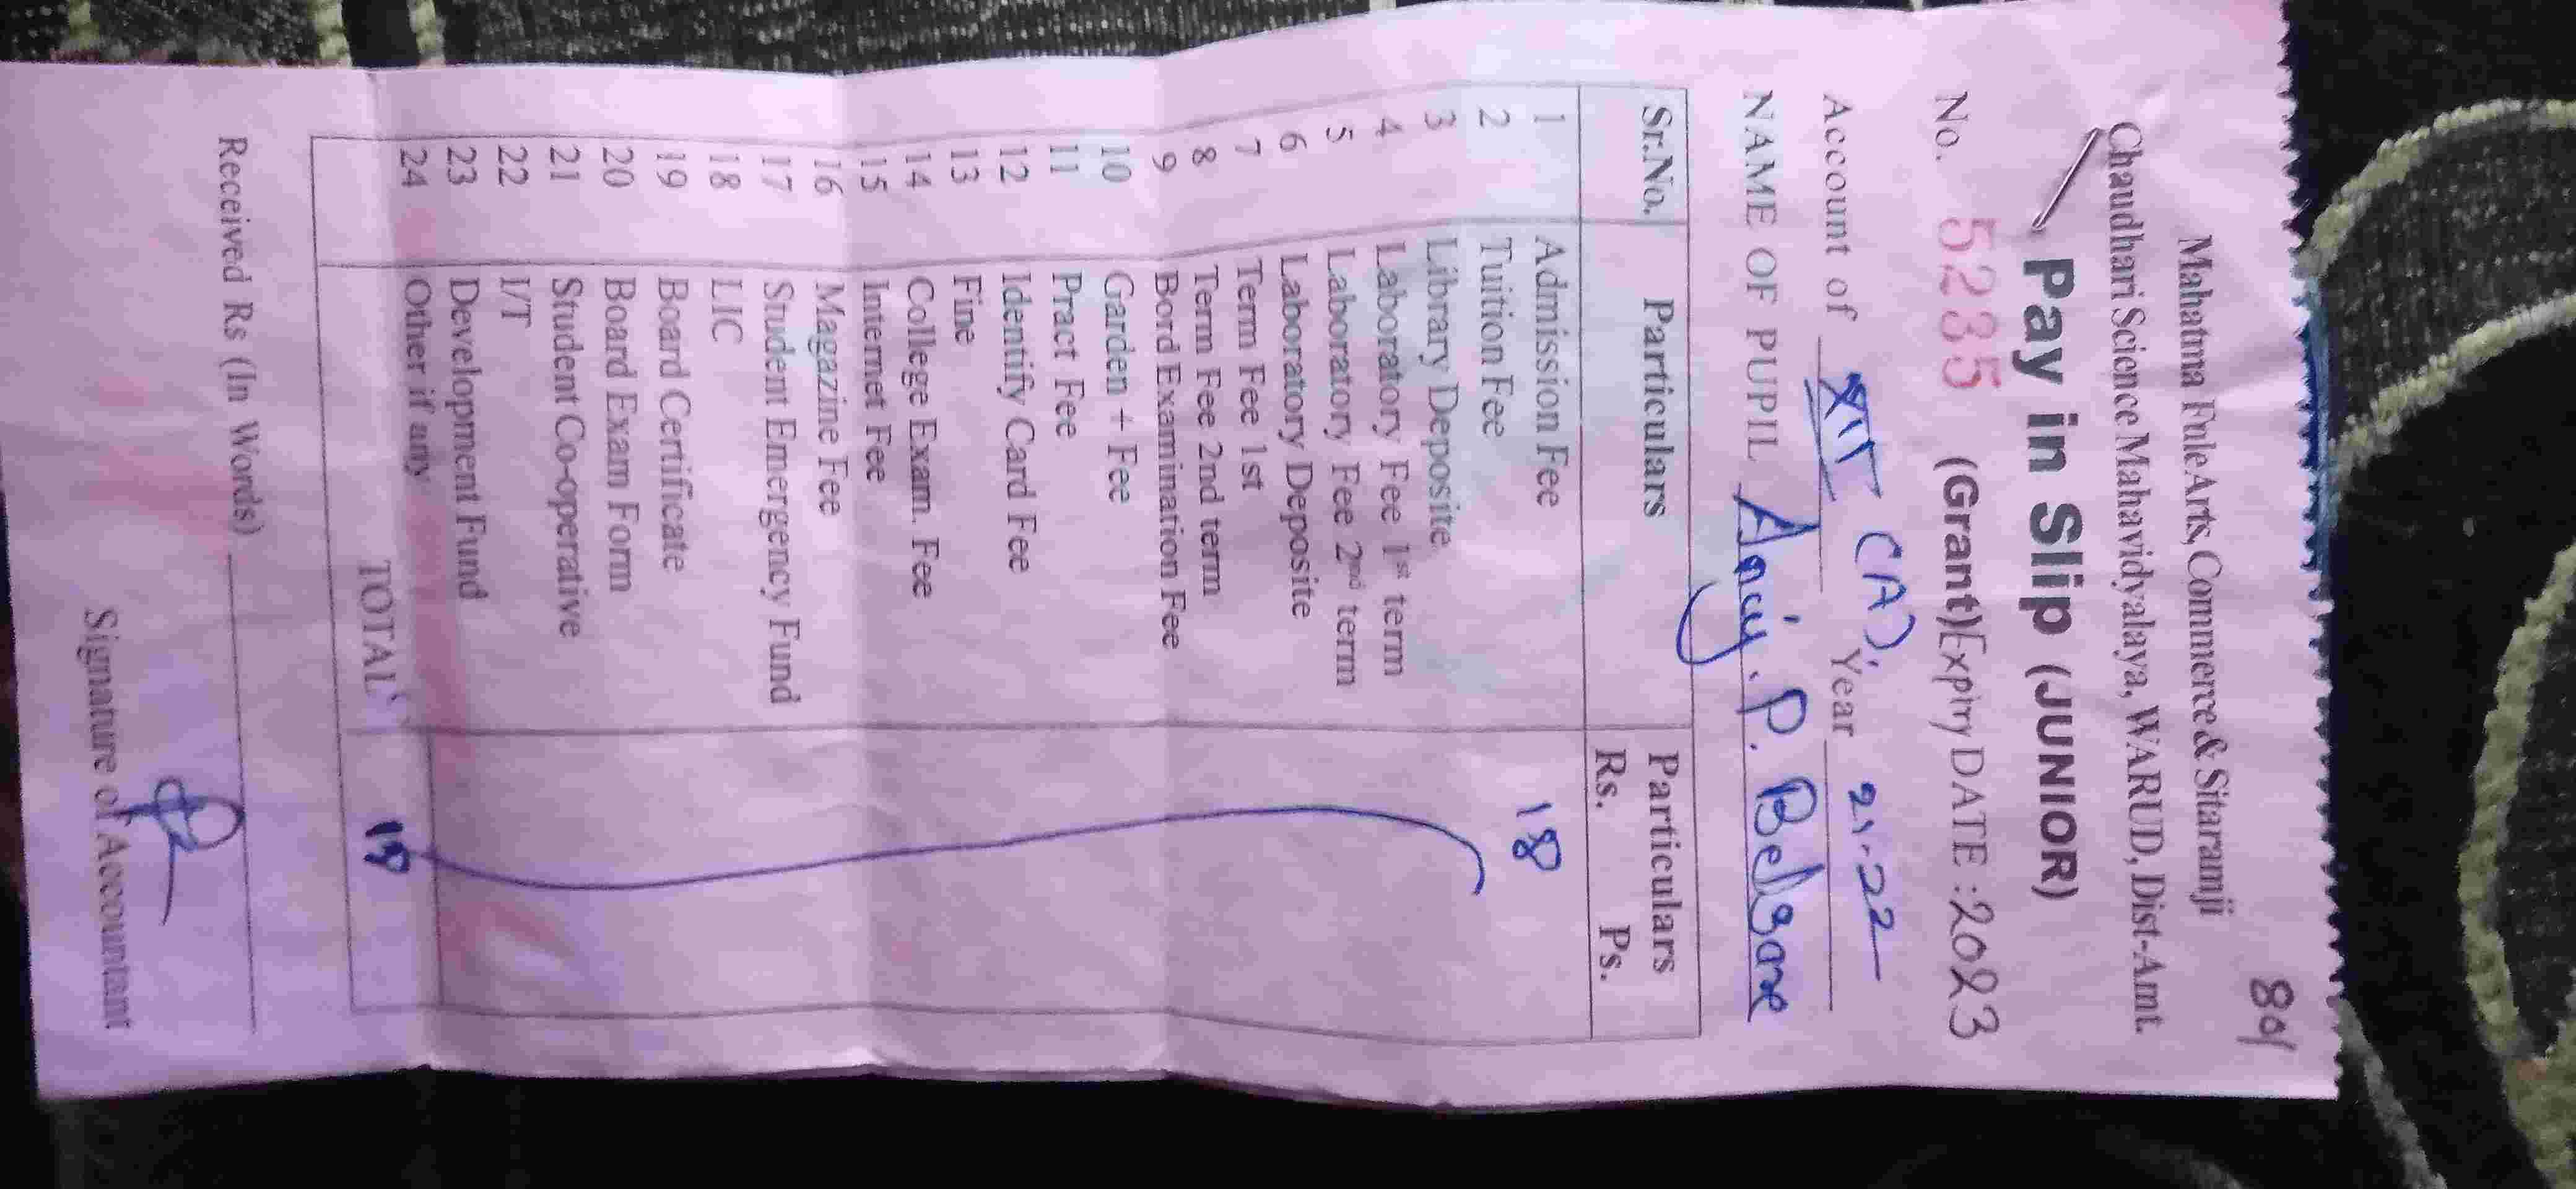 801
Mahatma Fule Arts, Commerce & Sitaramji
Chaudhari Science Mahavidyalaya, WARUD, Dist-Amt.
Pay in Slip (JUNIOR)
No. 5235 (Grant) Expiry DATE : 2023
Account of XII (A), Year 21-22
NAME OF PUPIL Anuj. P. Belsare
Sr.No. Particulars Particulars
Rs. Ps.
1 Admission Fee 18
2 Tuition Fee
3 Library Deposite
4 Laboratory Fee 1st term
5 Laboratory Fee 2nd term
6 Laboratory Deposite
7 Term Fee 1st
8 Term Fee 2nd term
9 Bord Examination Fee
10 Garden + Fee
11 Pract Fee
12 Identify Card Fee
13 Fine
14 College Exam. Fee
15 Internet Fee
16 Magazine Fee
17 Student Emergency Fund
18 LIC
19 Board Certificate
20 Board Exam Form
21 Student Co-operative
22 I/T
23 Development Fund
24 Other if any
TOTAL 18
Received Rs (In Words)
Signature of Accountant